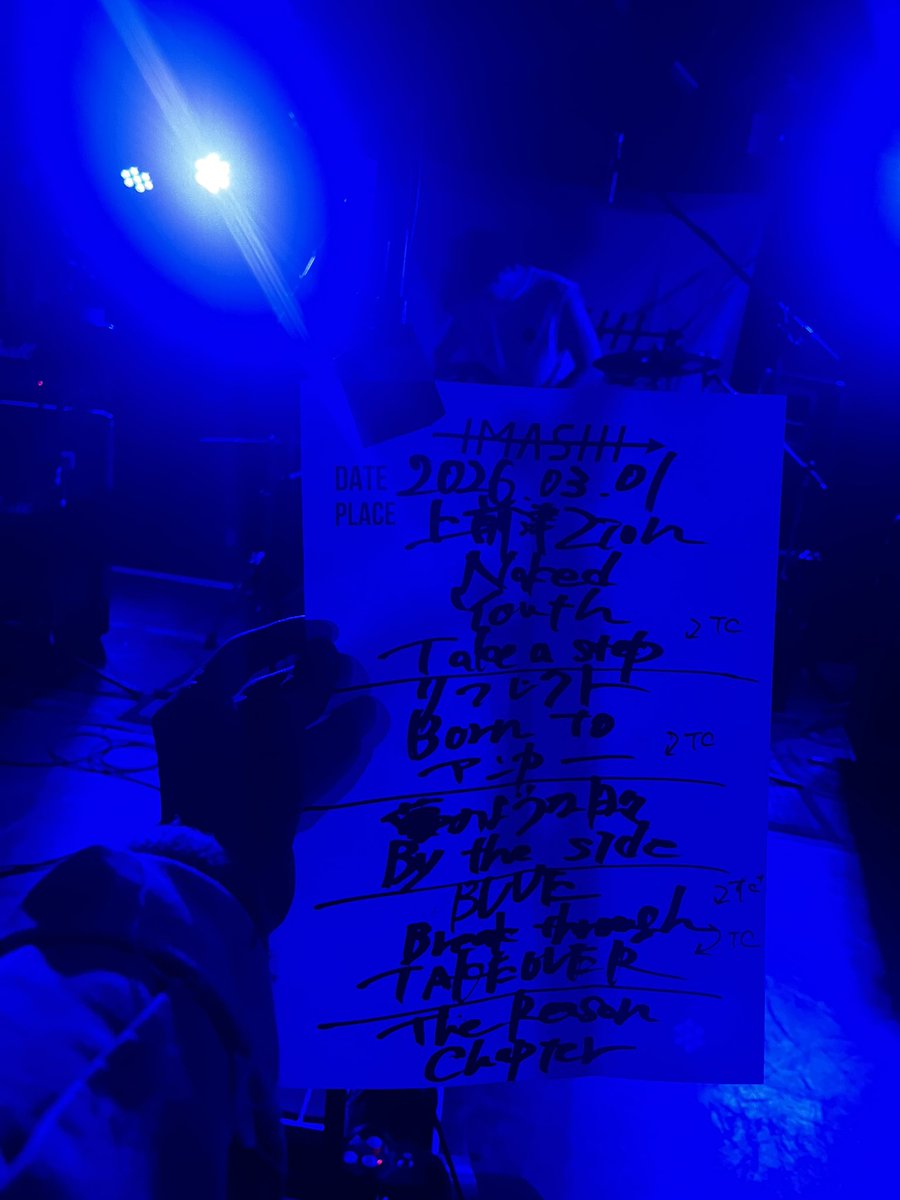 IMASHI
DATE 2026.03.01
PLACE 上前津Zion
Naked
Youth
Take a step
2TC
リフレクト
Born To
2TC
アンサー
のような日々
By the side
BLUE
2TC
Break through
2TC
TAKEOVER
The Reason
Chapter